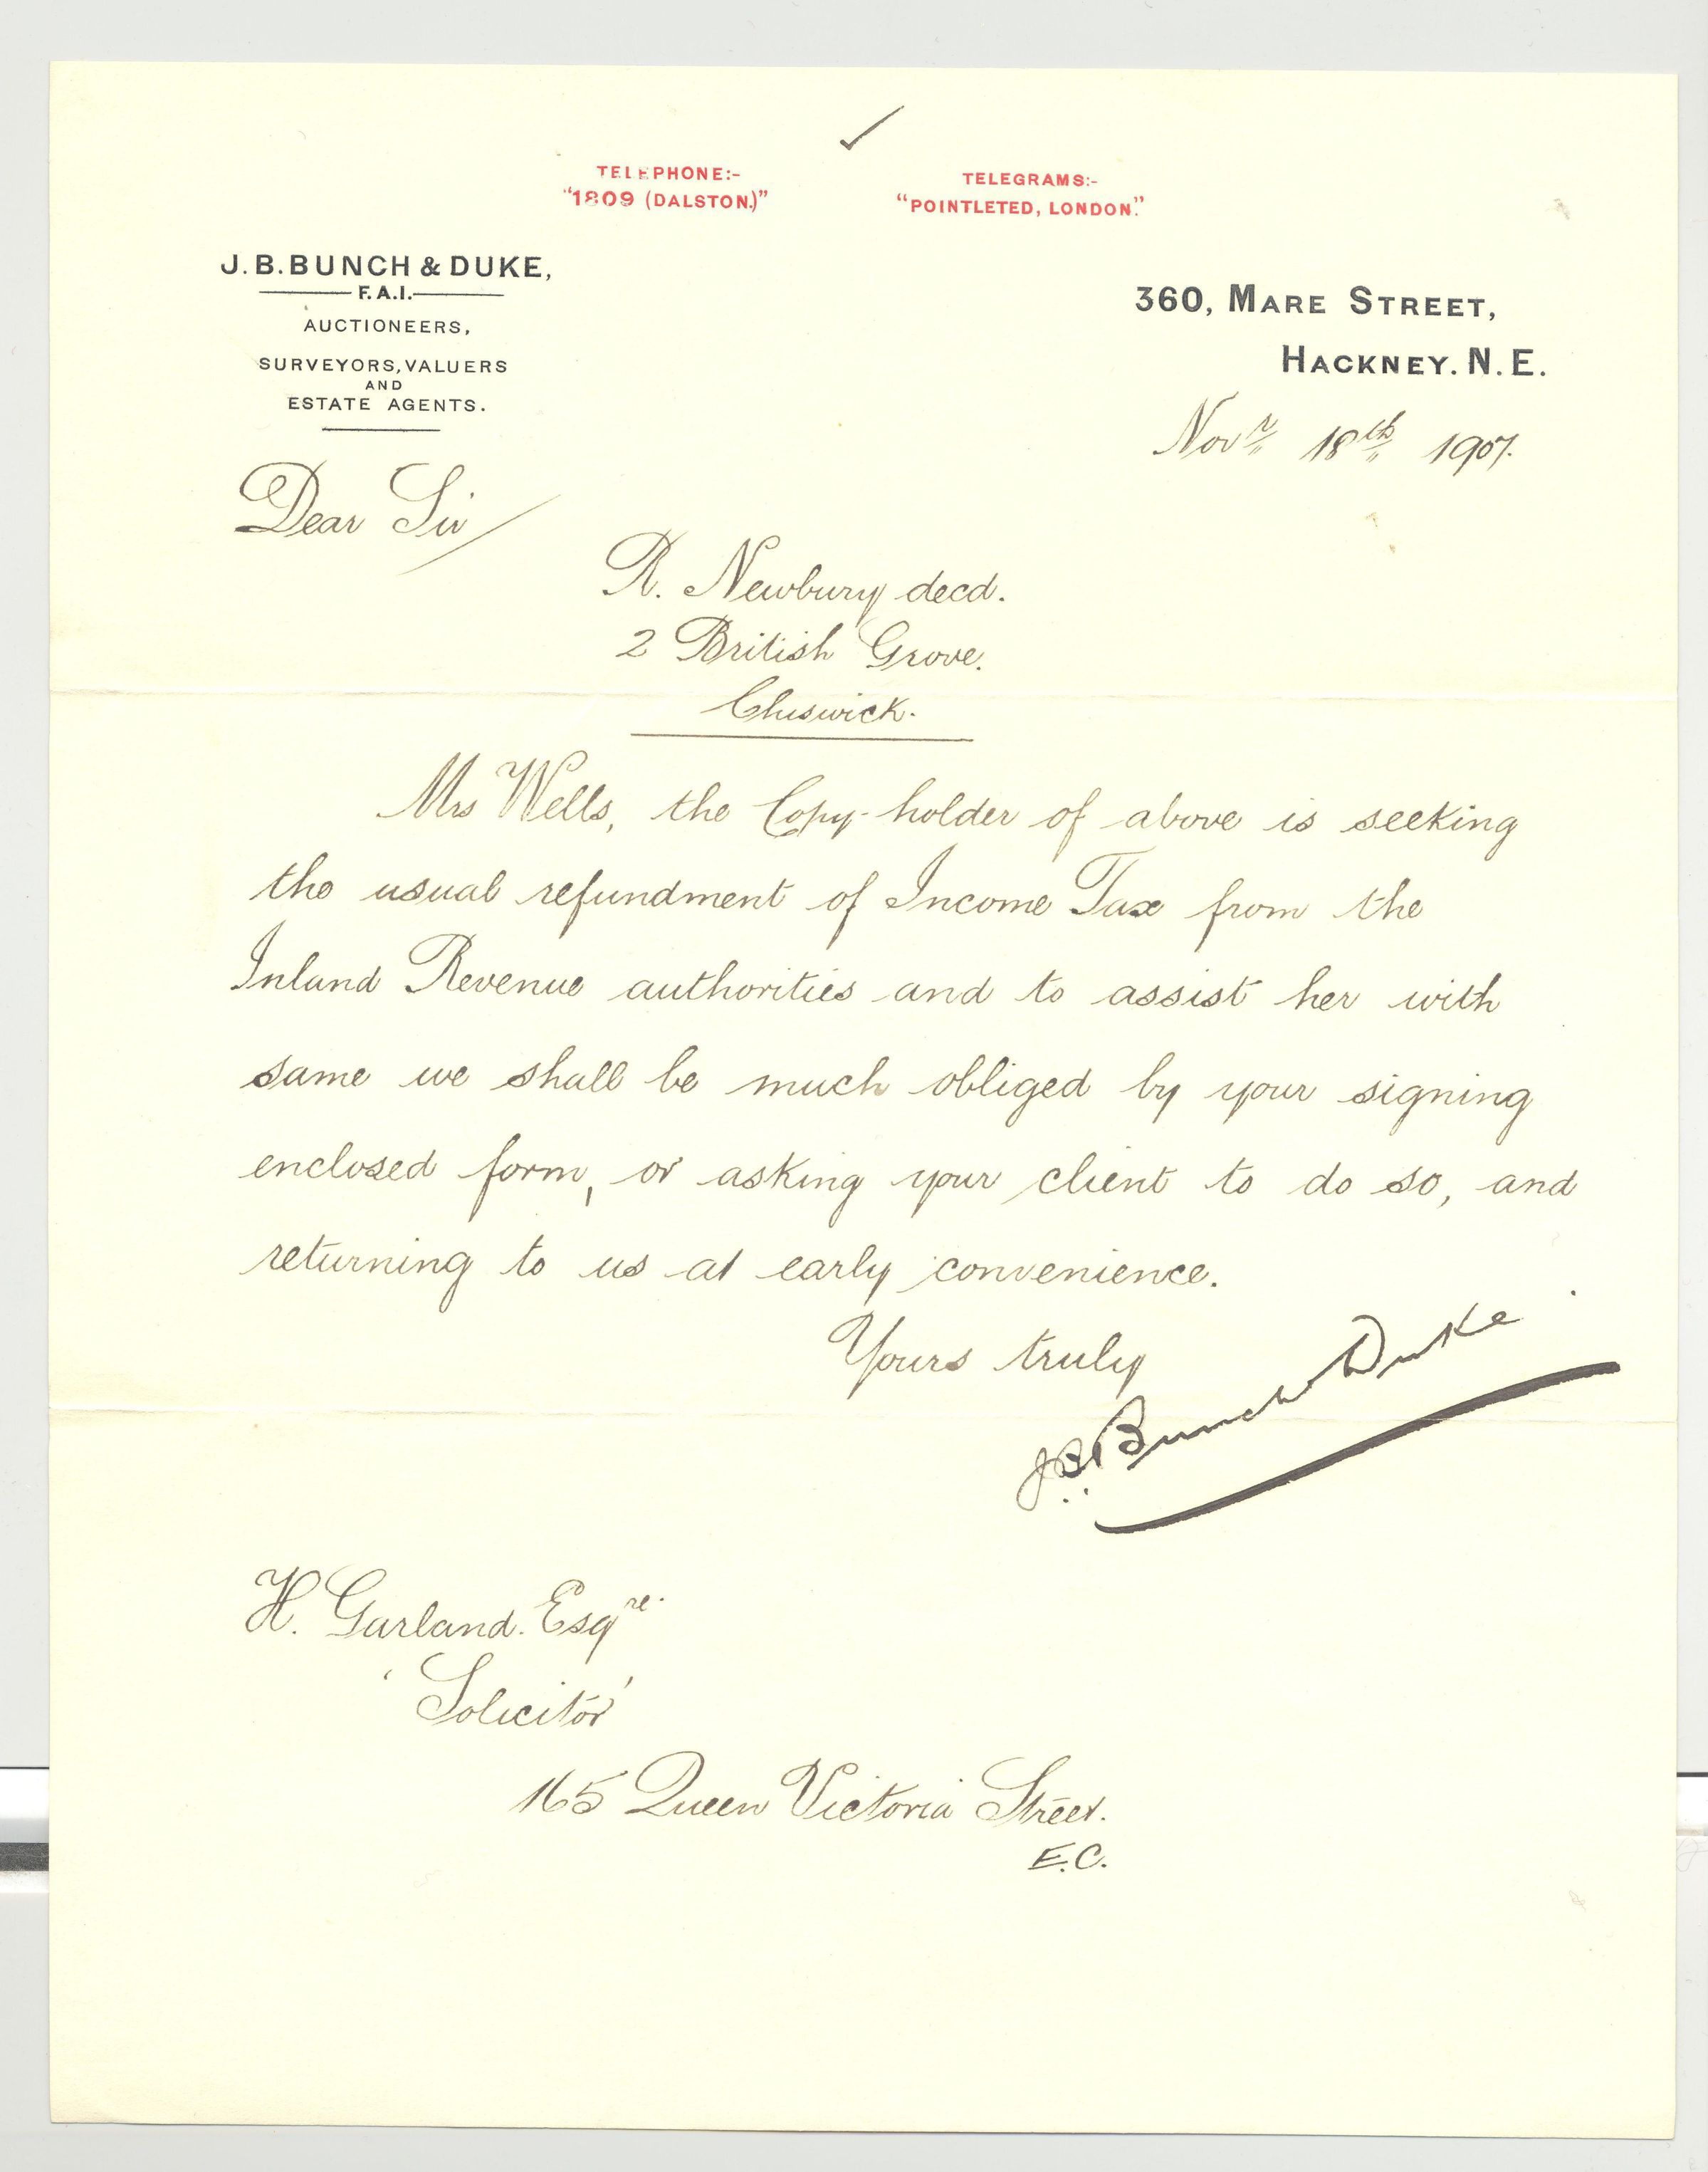 TELEPHONE:-
"1809 (DALSTON.)"
TELEGRAMS:-
"POINTLETED, LONDON."
J. B. BUNCH & DUKE,
F.A.I.
AUCTIONEERS,
SURVEYORS, VALUERS
AND
ESTATE AGENTS.
360, MARE STREET,
HACKNEY. N. E.
Novr 18th 1907.
Dear Sir
R. Newbury decd.
2 British Grove.
Chiswick.
Mrs Wells, the Copy-holder of above is seeking
the usual refundment of Income Tax from the
Inland Revenue authorities and to assist her with
same we shall be much obliged by your signing
enclosed form, or asking your client to do so, and
returning to us at early convenience.
Yours truly
J.B. Bunch & Duke
H. Garland. Esqre.
'Solicitor'
165 Queen Victoria Street.
E.C.